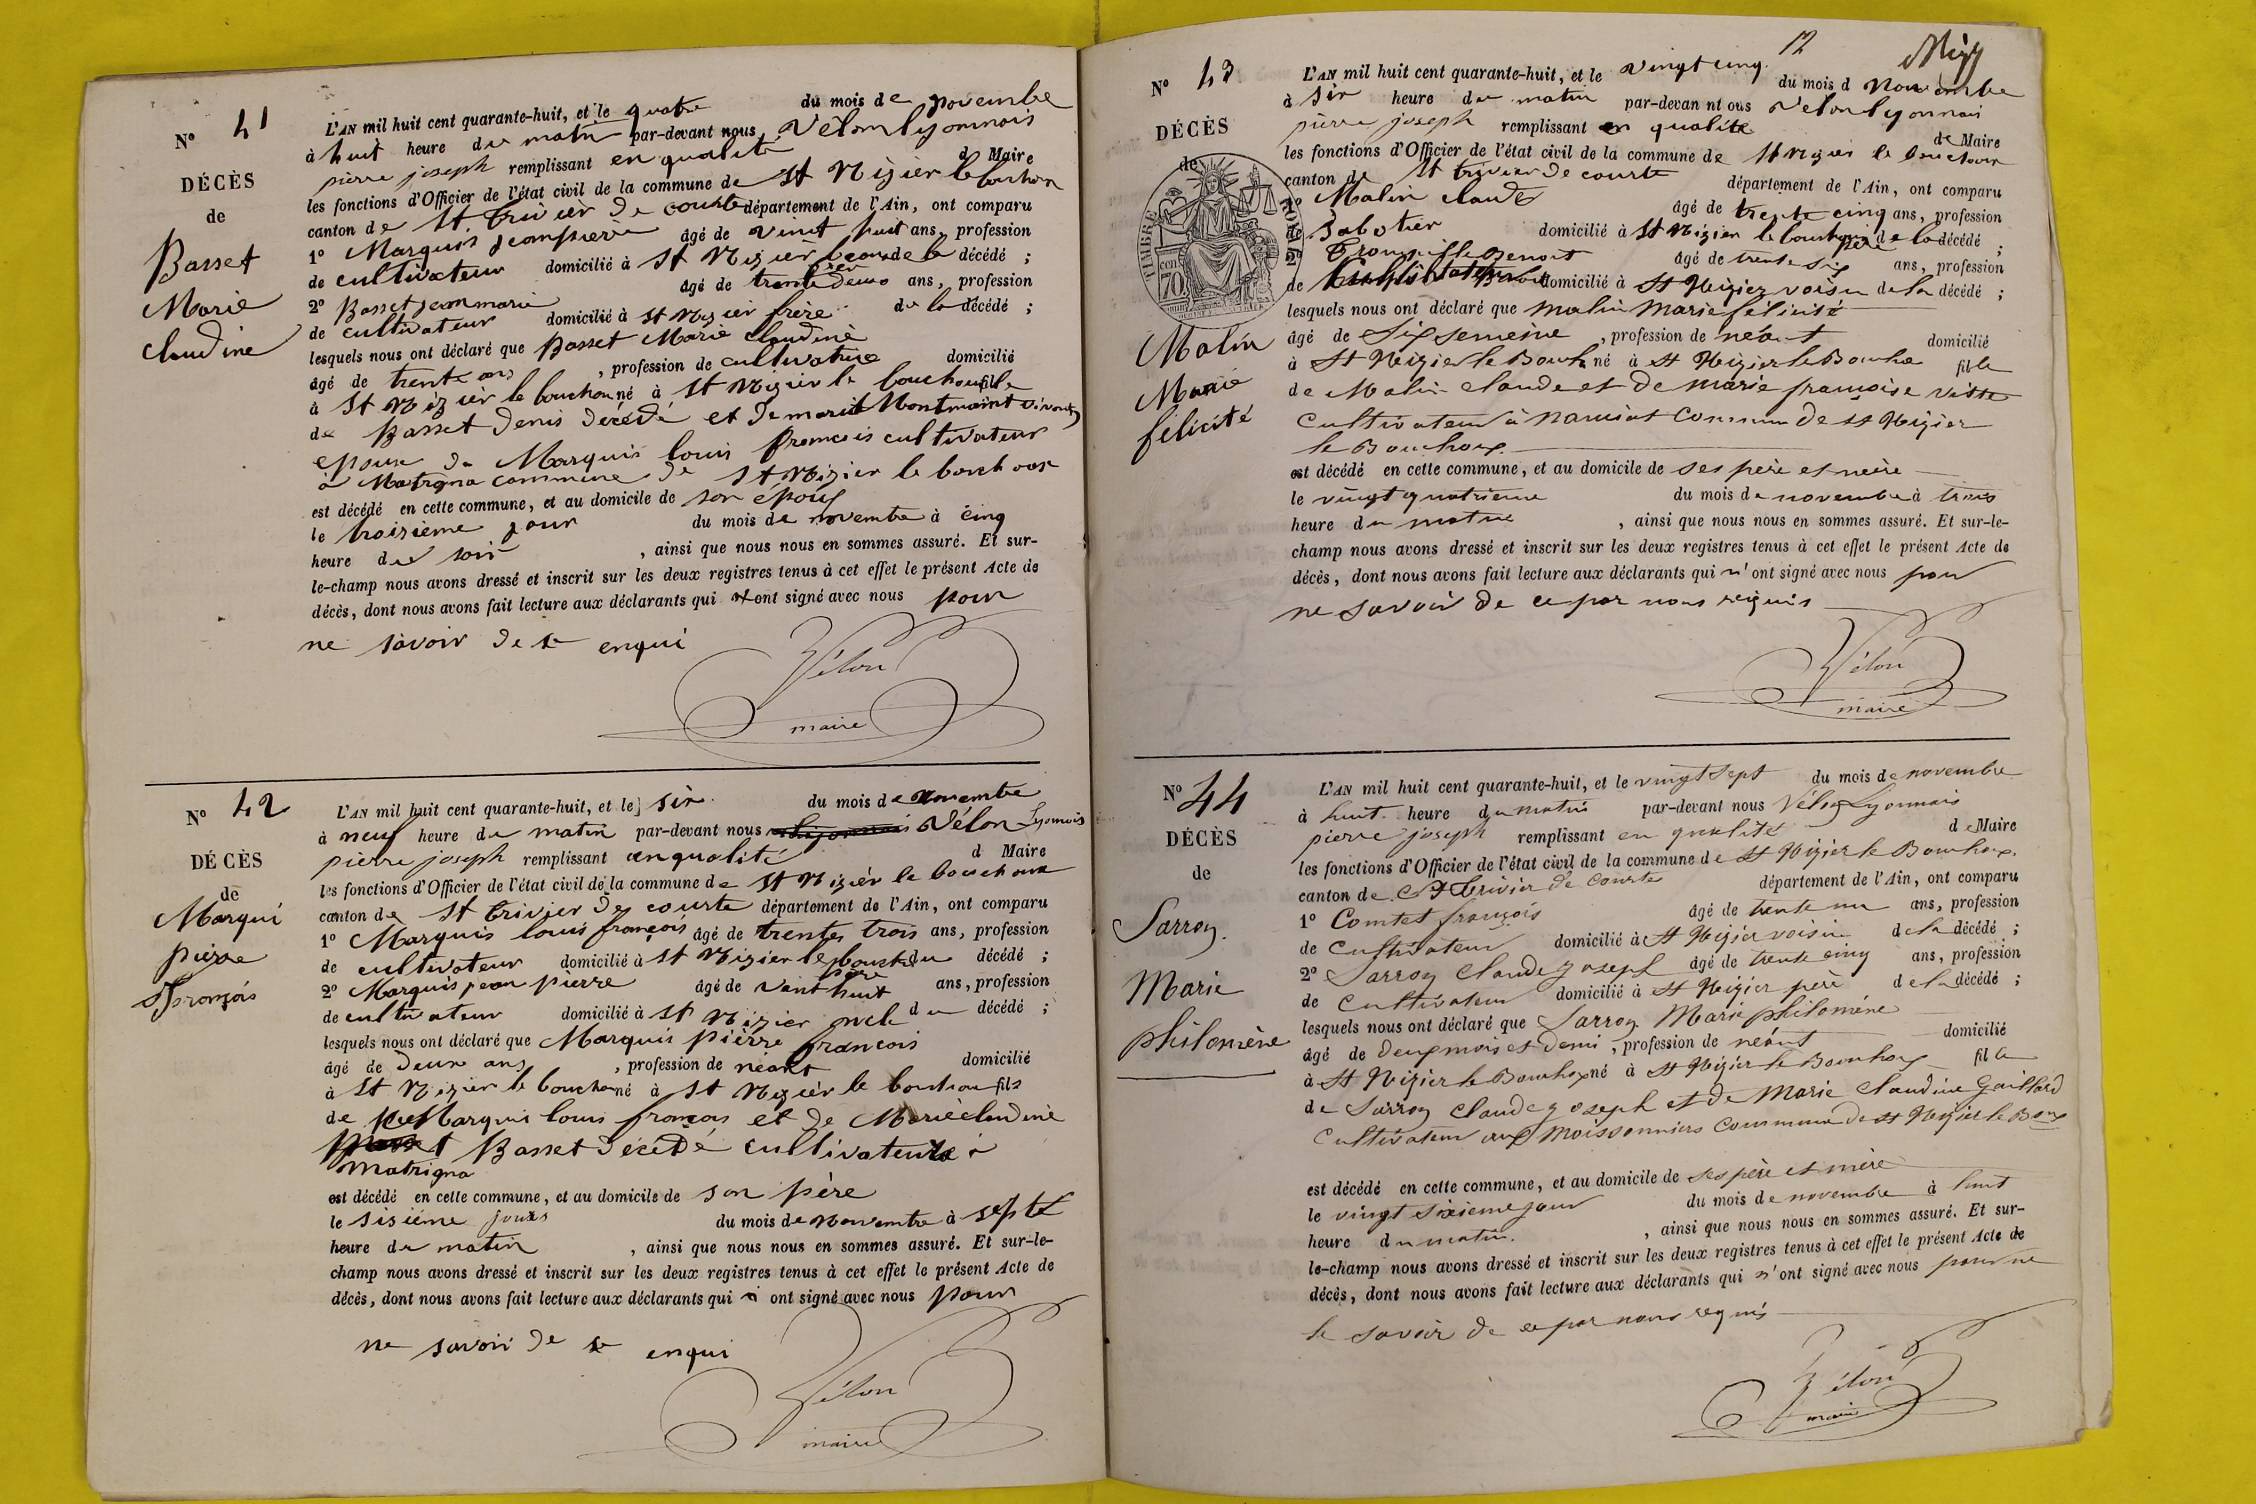 N° 41
DÉCÈS
de
Basset
Marie
claudine
L'AN mil huit cent quarante-huit, et le quatre du mois de novembre
à huit heure du matin par-devant nous Vélon lyonnais
pierre joseph remplissant en qualité de Maire
les fonctions d'Officier de l'état civil de la commune de St Nizier le bouchoux
canton de St trivier de courte département de l'Ain, ont comparu
1° Marquis jeanpierre âgé de vint huit ans, profession
de cultivateur domicilié à St Nizier de la décédé ;
2° Basset jean marie âgé de trente deux ans, profession
de cultivateur domicilié à St Nizier frère de la décédé ;
lesquels nous ont déclaré que Basset Marie claudine
âgé de trente ans, profession de cultivatrice domicilié
à St Nizier le bouchou né à St Nizier le bouchou fille
de Basset denis décédé et de marie Montmaint
epouse de Marquis louis francois cultivateur
à Matrigna commune de St Nizier le bouchoux
est décédé en cette commune, et au domicile de son époux
le troisième jour du mois de novembre à cinq
heure du soir, ainsi que nous nous en sommes assuré. Et sur-
le-champ nous avons dressé et inscrit sur les deux registres tenus à cet effet le présent Acte de
décès, dont nous avons fait lecture aux déclarants qui n'ont signé avec nous pour
ne savoir de se enqui
Vélon
maire
N° 42
DÉCÈS
de
Marqui
pierre
françois
L'AN mil huit cent quarante-huit, et le six du mois de novembre
à neuf heure du matin par-devant nous Vélon Lyonnois
pierre joseph remplissant en qualité d Maire
les fonctions d'Officier de l'état civil de la commune de St Nizier le bouchoux
canton de St trivier de courte département de l'Ain, ont comparu
1° Marquis louis françois âgé de trentes trois ans, profession
de cultivateur domicilié à St Nizier le bouch père du décédé ;
2° Marquis jean pierre âgé de vint huit ans, profession
de cultivateur domicilié à St Nizier oncle du décédé ;
lesquels nous ont déclaré que Marquis pierre francois
âgé de deux ans, profession de néant domicilié
à St Nizier le bouchou né à St Nizier le bouchou fils
de Marquis louis francois et de Marie cludine
Basset décédé cultivateurs à
Matrigna
est décédé en cette commune, et au domicile de son père
le sisième jours du mois de novembre à septe
heure du matin, ainsi que nous nous en sommes assuré. Et sur-le-
champ nous avons dressé et inscrit sur les deux registres tenus à cet effet le présent Acte de
décès, dont nous avons fait lecture aux déclarants qui n ont signé avec nous pour
ne savoir de se enqui
Vélon
maire
12
N° 43
DÉCÈS
de
TIMBRE ROYAL
70
Malin
Marie
félicité
L'AN mil huit cent quarante-huit, et le vingt cinq du mois d Novembre
à six heure du matin par-devan nt ous Vélon lyonnais
pierre joseph remplissant en qualité de Maire
les fonctions d'Officier de l'état civil de la commune de St Nizier le bouchoux
canton de St trivier de courte département de l'Ain, ont comparu
1° Malin claude âgé de trente cinq ans, profession
de Sabotier domicilié à St Nizier le bouchoux père de la décédé ;
benoit âgé de trente six ans, profession
de domicilié à St Nizier voisin de la décédé ;
lesquels nous ont déclaré que malin Marie félicité
âgé de six semeine, profession de néant domicilié
à St Nizier le Bouch né à St Nizier le Boucho fille
de Malin claude et de marie françoise vitte
cultivateur à commun de St Nizier
le Bouchoux
est décédé en cette commune, et au domicile de ses père et mère
le vingt quatrieme du mois de novembre à trois
heure du matin, ainsi que nous nous en sommes assuré. Et sur-le-
champ nous avons dressé et inscrit sur les deux registres tenus à cet effet le présent Acte de
décès, dont nous avons fait lecture aux déclarants qui n'ont signé avec nous pour
ne savoir de ce par nous requis
Vélon
maire
N° 44
DÉCÈS
de
Sarroy
Marie
philomène
L'AN mil huit cent quarante-huit, et le vingt sept du mois de novembre
à huit heure du matin par-devant nous Vélon Lyonnais
pierre joseph remplissant en qualité de Maire
les fonctions d'Officier de l'état civil de la commune de St Nizier le Bouchoux
canton de St trivier de courte département de l'Ain, ont comparu
1° Comtet françois âgé de trente un ans, profession
de cultivateur domicilié à St Nizier voisin de la décédé ;
2° Sarroy claude joseph âgé de trente cinq ans, profession
de cultivateur domicilié à St Nizier père de la décédé ;
lesquels nous ont déclaré que Sarroy Marie philomène
âgé de deux mois et demi, profession de néant domicilié
à St Nizier le Bouchox né à St Nizier le Bouchoux fille
de Sarroy claude joseph et de Marie claudine Gaillard
cultivateur aux Moissonniers commune de St Nizier le Boux
est décédé en cette commune, et au domicile de ses père et mère
le vingt sixieme jour du mois de novembre à huit
heure du matin, ainsi que nous nous en sommes assuré. Et sur-
le-champ nous avons dressé et inscrit sur les deux registres tenus à cet effet le présent Acte de
décès, dont nous avons fait lecture aux déclarants qui n'ont signé avec nous pour ne
le savoir de ce par nous requis
Vélon
maire